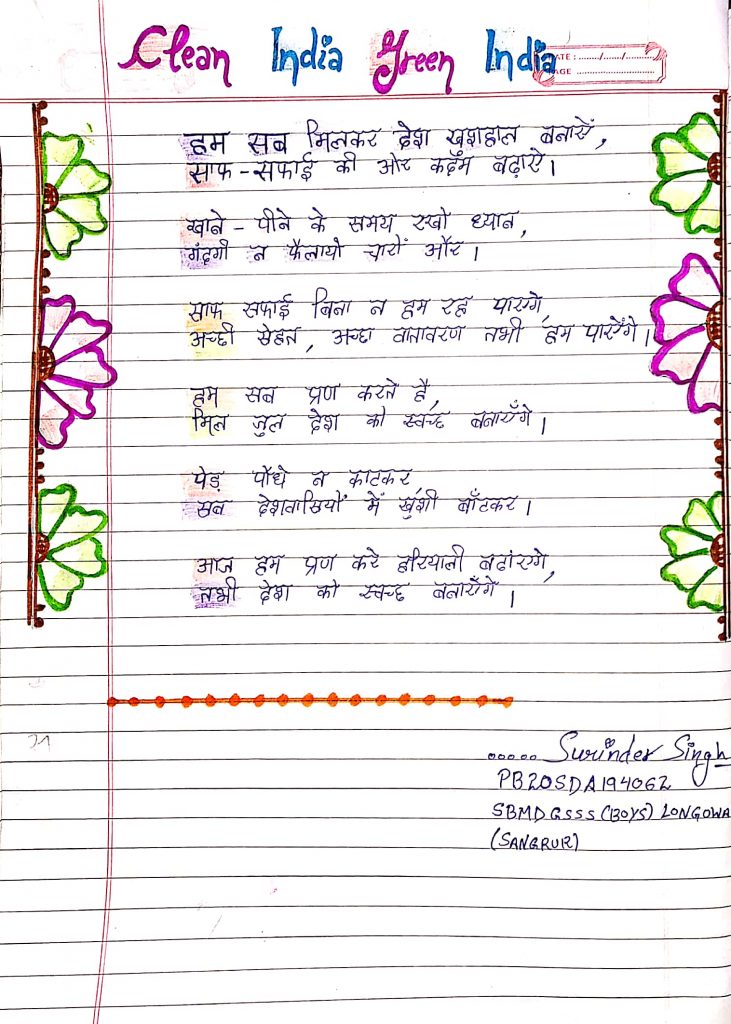 Clean India Green India
DATE : ....../....../......
PAGE ........................
हम सब मिलकर देश खुशहाल बनाऐं,
साफ - सफाई की ओर कदम बढ़ाऐं।
खाने - पीने के समय रखो ध्यान,
गंदगी न फैलायो चारों और।
साफ सफाई बिना न हम रह पाएगे,
अच्छी सेहत, अच्छा वातावरण तभी हम पाऐंगे।
हम सब प्रण करते है,
मिल जुल देश को स्वच्छ बनाएँगे।
पेड़ पौधे न काटकर,
सब देशवासियों में खुशी बाँटकर।
आज हम प्रण करे हरियाली बढांएगे,
तभी देश को स्वच्छ बनाऐंगे।
..... Surinder Singh
PB20SDA194062
SBMD GSSS (BOYS) LONGOWA
(SANGRUR)